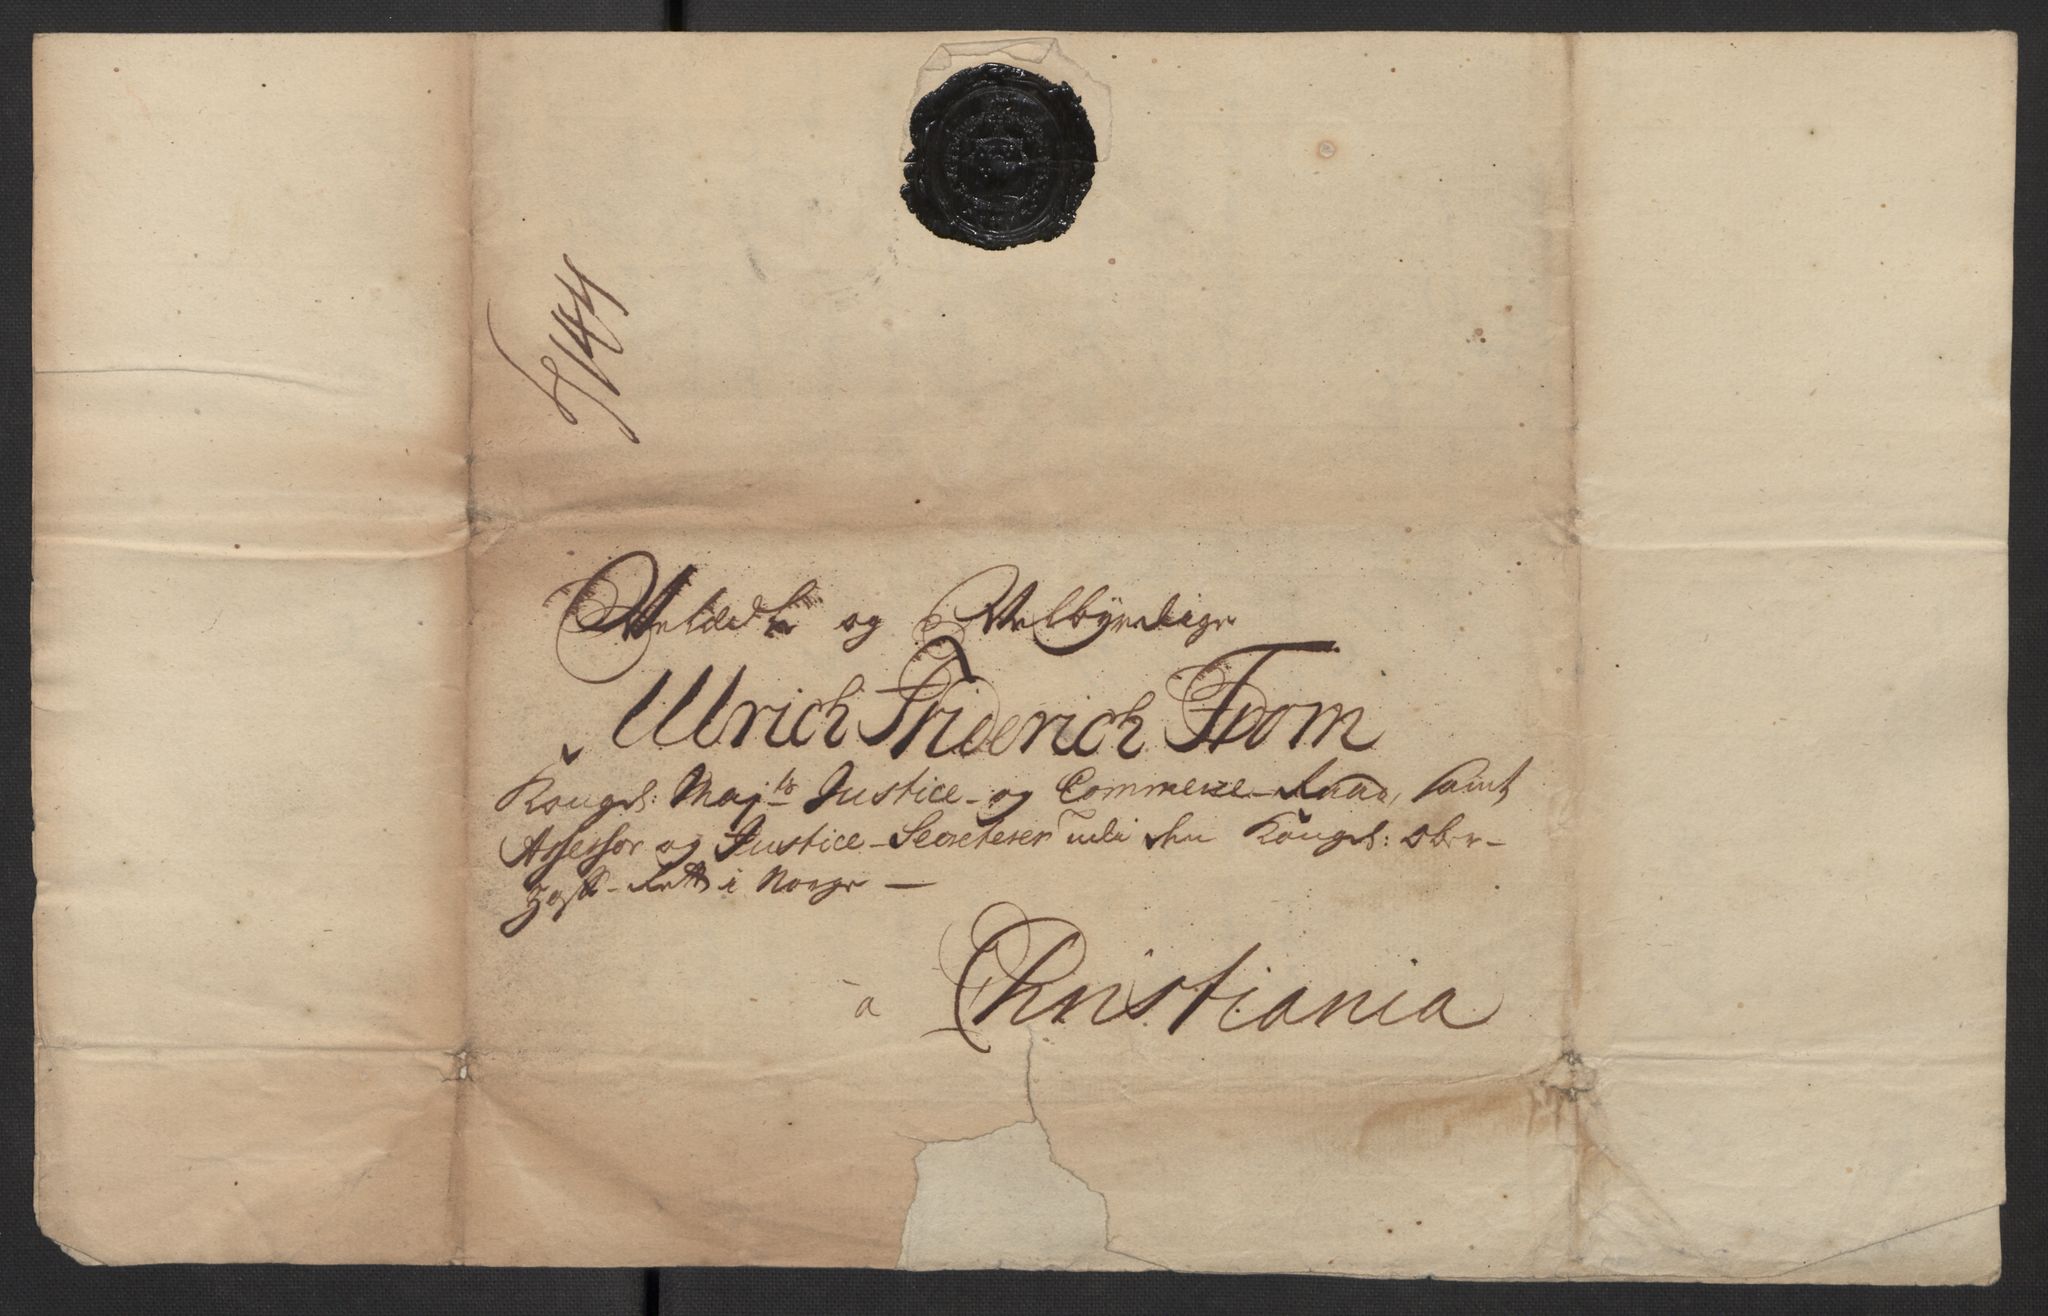 144
Veldedle og Velbyrdige
Ulrich Friderich From
Kongel: Maj:ts Justice- og Commerce-Raad, samt
Assessor og Justice-Secreterer udi den Kongel: Ober-
Hoff-Rett i Norge —
a Christiania